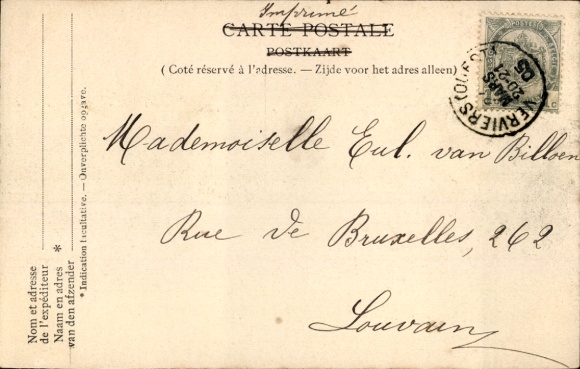 Imprimé
CARTE POSTALE
POSTKAART
( Coté réservé à l'adresse. — Zijde voor het adres alleen )
VERVIERS (OUEST)
20-21
MARS
05
Mademoiselle Eul. van Billoen
Rue de Bruxelles, 262
Louvain
Nom et adresse
de l'expéditeur
Naam en adres *
van den afzender
* Indication facultative. — Onverplichte opgave.